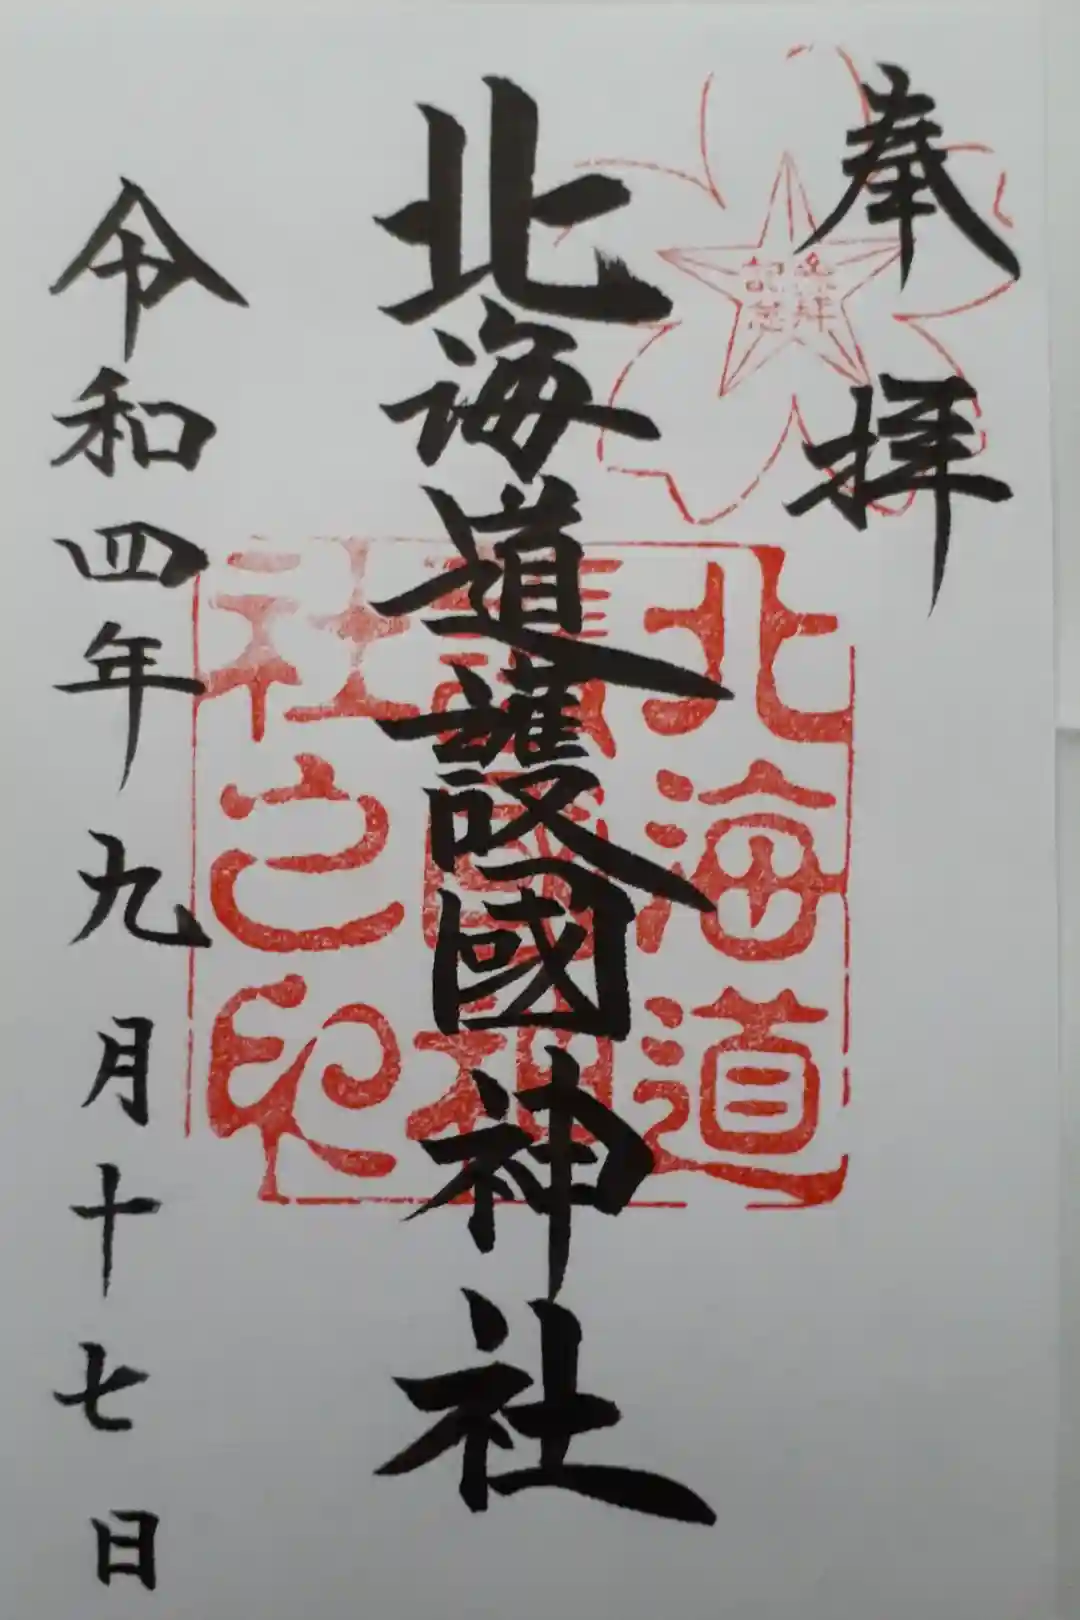 奉拝
参拝記念
北海道護國神社
北海道
護國神
社之印
令和四年九月十七日